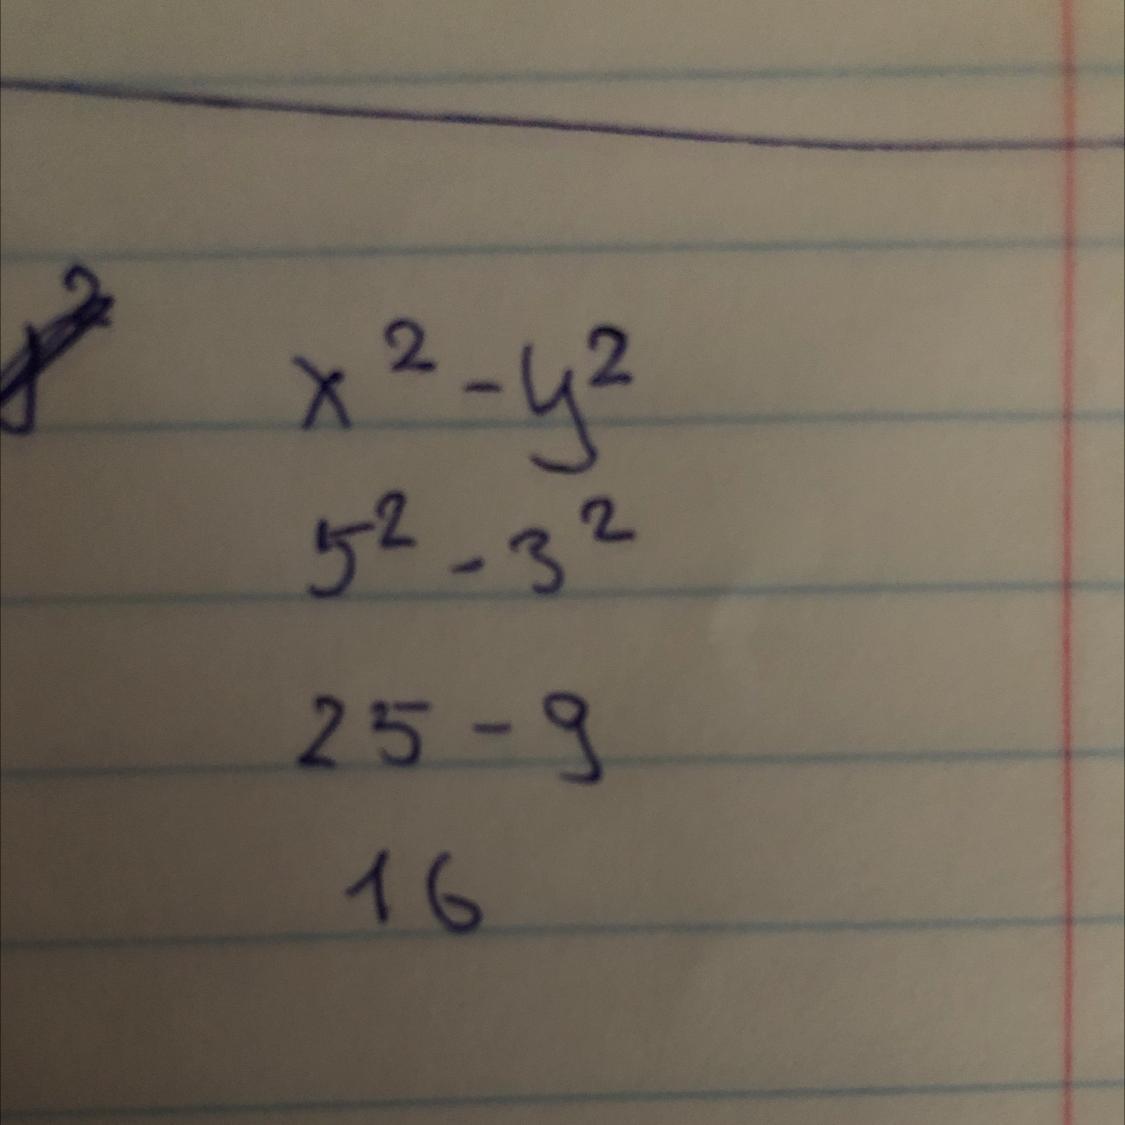 x² - y²
5² - 3²
25 - 9
16